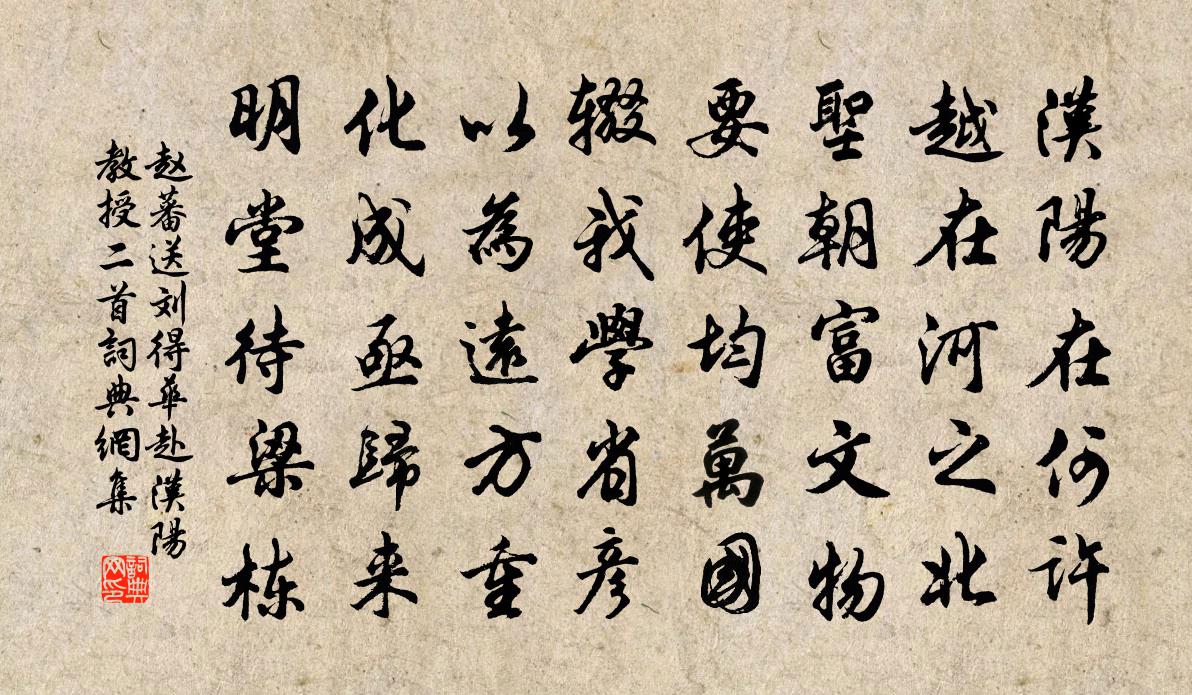 漢陽在何許
越在河之北
聖朝富文物
要使均萬國
辍我學省彥
以為遠方重
化成亟歸来
明堂待梁栋
赵蕃送刘得华赴漢陽
教授二首詞典網集
詞典
网印